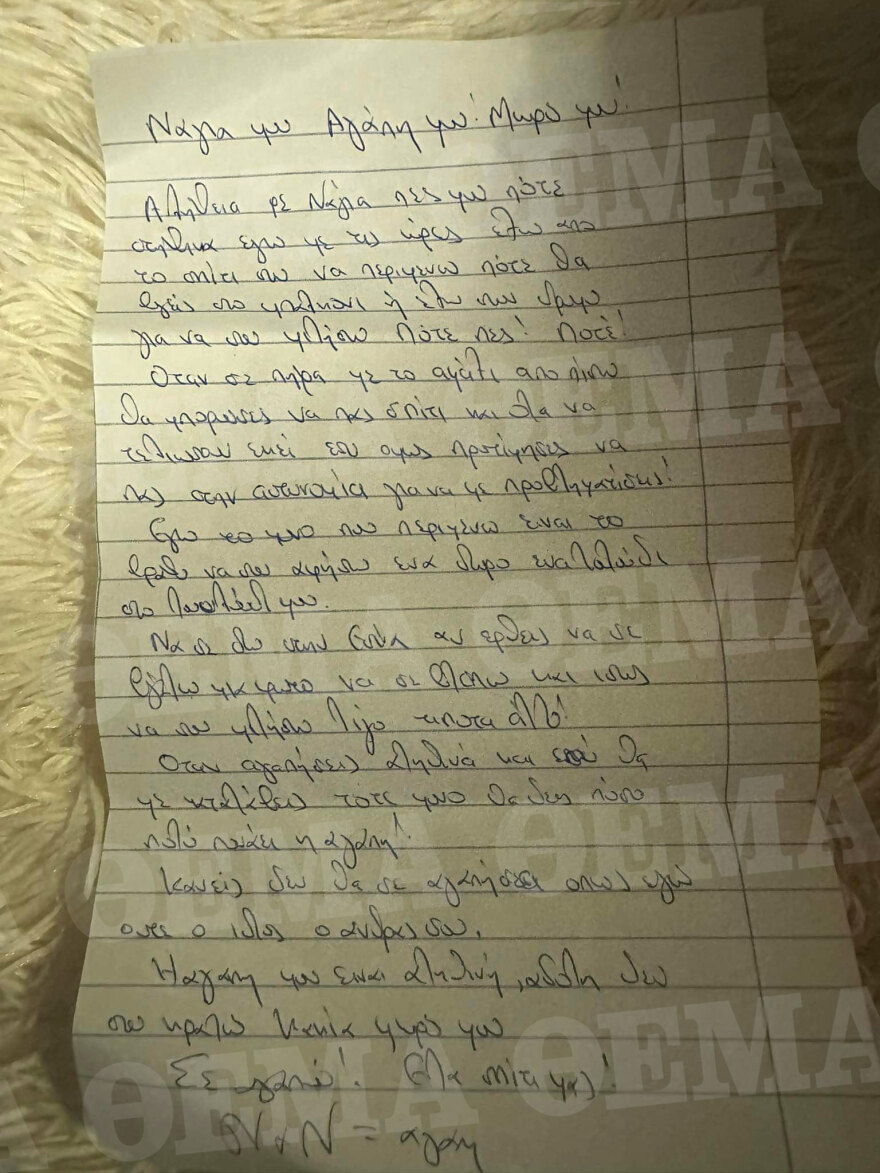 Νάγια μου Αγάπη μου! Μωρό μου!
Αλήθεια ρε Νάγια πες μου πότε
στήθηκα εγω με τις ώρες έξω απο
το σπίτι σου να περιμενω πότε θα
βγείς στο μπαλκονι ή έξω στον δρομο
για να σου μιλήσω Πότε πες! Ποτέ!
Οταν σε πηρα με το αμάξι απο πισω
θα μπορουσες να πας σπίτι και ολα να
τελιωσουν εκεί εσυ ομως προτίμησες να
πας στην αστυνομία για να με προβληματίσεις!
Εγω το μονο που περιμενω ειναι το
βραδυ να σου αφήσω ενα δωρο ενα λουλούδι
στο
Να σε δω στην αν ερθεις να σε
βγάλω να σε βλεπω και ισως
να σου μιλήσω λίγο τιποτα άλλο!
Οταν αγαπήσεις αληθινά και εσύ θα
με καταλάβεις τότε μονο θα δεις πόσο
πολύ πονάει η αγάπη!
Κανείς δεν θα σε αγαπήσει οπως εγώ
ουτε ο ιδιος ο ανδρας σου.
Η αγαπη μου ειναι αληθινή, αδολη δεν
σου κρατω κακία μωρό μου
Σε αγαπώ! Ελα σπίτι μας!
Ν + Ν = αγαπη
ΘΕΜΑ
ΘΕΜΑ
ΘΕΜΑ
ΘΕΜΑ
ΘΕΜΑ
ΘΕΜΑ
ΘΕΜΑ